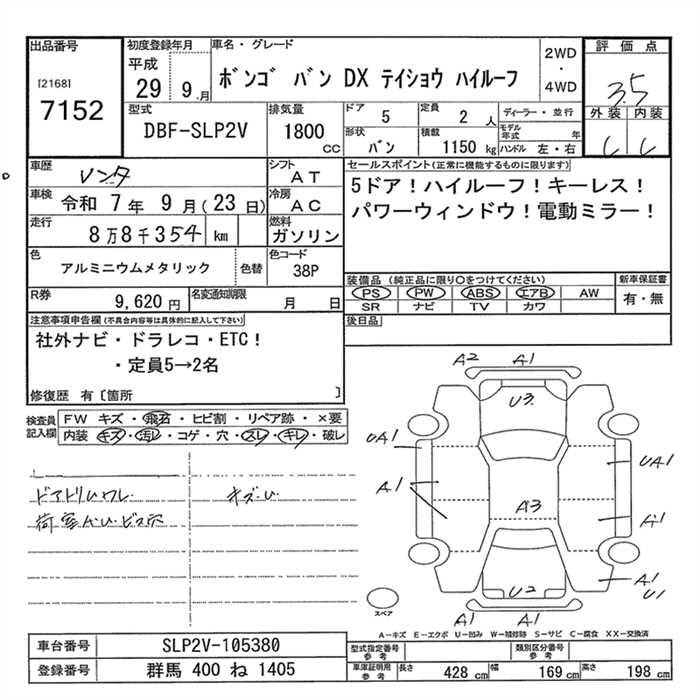 出品番号
[2168]
7152
初度登録年月
平成
29 9.月
車名・グレード
ボンゴ バン DX テイショウ ハイルーフ
2WD
・
4WD
評価点
3.5
外装 内装
型式
DBF-SLP2V
排気量
1800
CC
ドア
5
定員
2 人
形状
バン
積載
1150 kg
ディーラー・並行
モデル年式 年
ハンドル 左・右
車歴
レンタ
シフト
AT
車検
令和 7 年 9 月(23 日)
冷房
AC
走行
8万8千354 km
燃料
ガソリン
色
アルミニウムメタリック
色替
色コード
38P
R券
9,620 円
名変通知期限
月 日
セールスポイント(正常に機能するものに限ります)
5ドア!ハイルーフ!キーレス!
パワーウィンドウ!電動ミラー!
装備品(純正品に限り○をつけてください)
PS PW ABS エアB AW
SR ナビ TV カワ
新車保証書
有・無
後日品
注意事項申告欄(不具合内容等は具体的に記入して下さい)
社外ナビ・ドラレコ・ETC!
・定員5→2名
修復歴 有〔箇所 〕
検査員
記入欄
FW キズ・飛石・ヒビ割・リペア跡・×要
内装 キズ・汚レ・コゲ・穴・スレ・キレ・破レ
キズ・U
A2 A1
U3
UA1
UA1
A1
A3
A1
A1
U1
U2
A1 A1
スペア
A-キズ E-エクボ U-凹み W-補修跡 S-サビ C-腐食 XX-交換済
車台番号
SLP2V-105380
登録番号
群馬 400 ね 1405
型式指定番号
参考
類別区分番号
参考
車庫証明用
参考
長さ
428 cm
幅
169 cm
高さ
198 cm